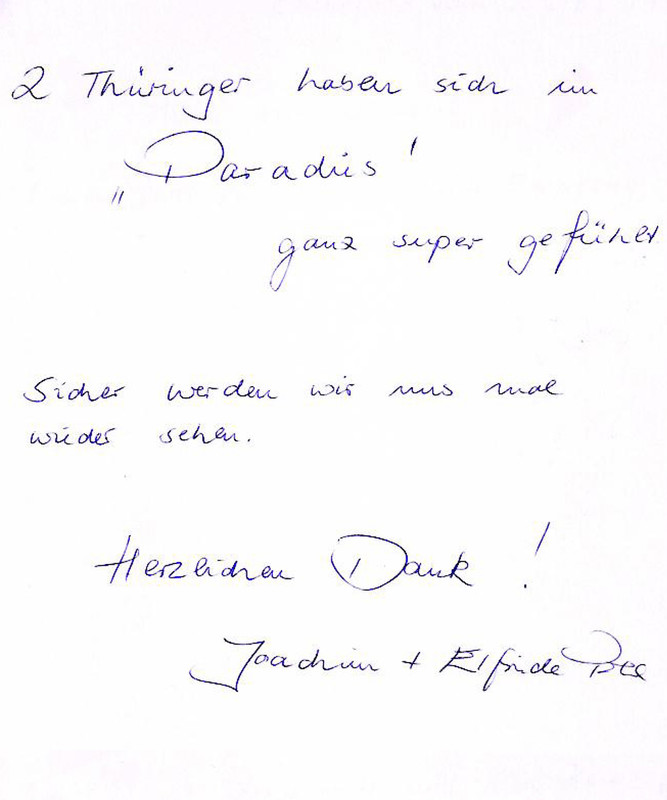 2 Thüringer haben sich im
„Paradies'
ganz super gefühlt
Sicher werden wir uns mal
wieder sehen.
Herzlichen Dank !
Joachim + Elfriede